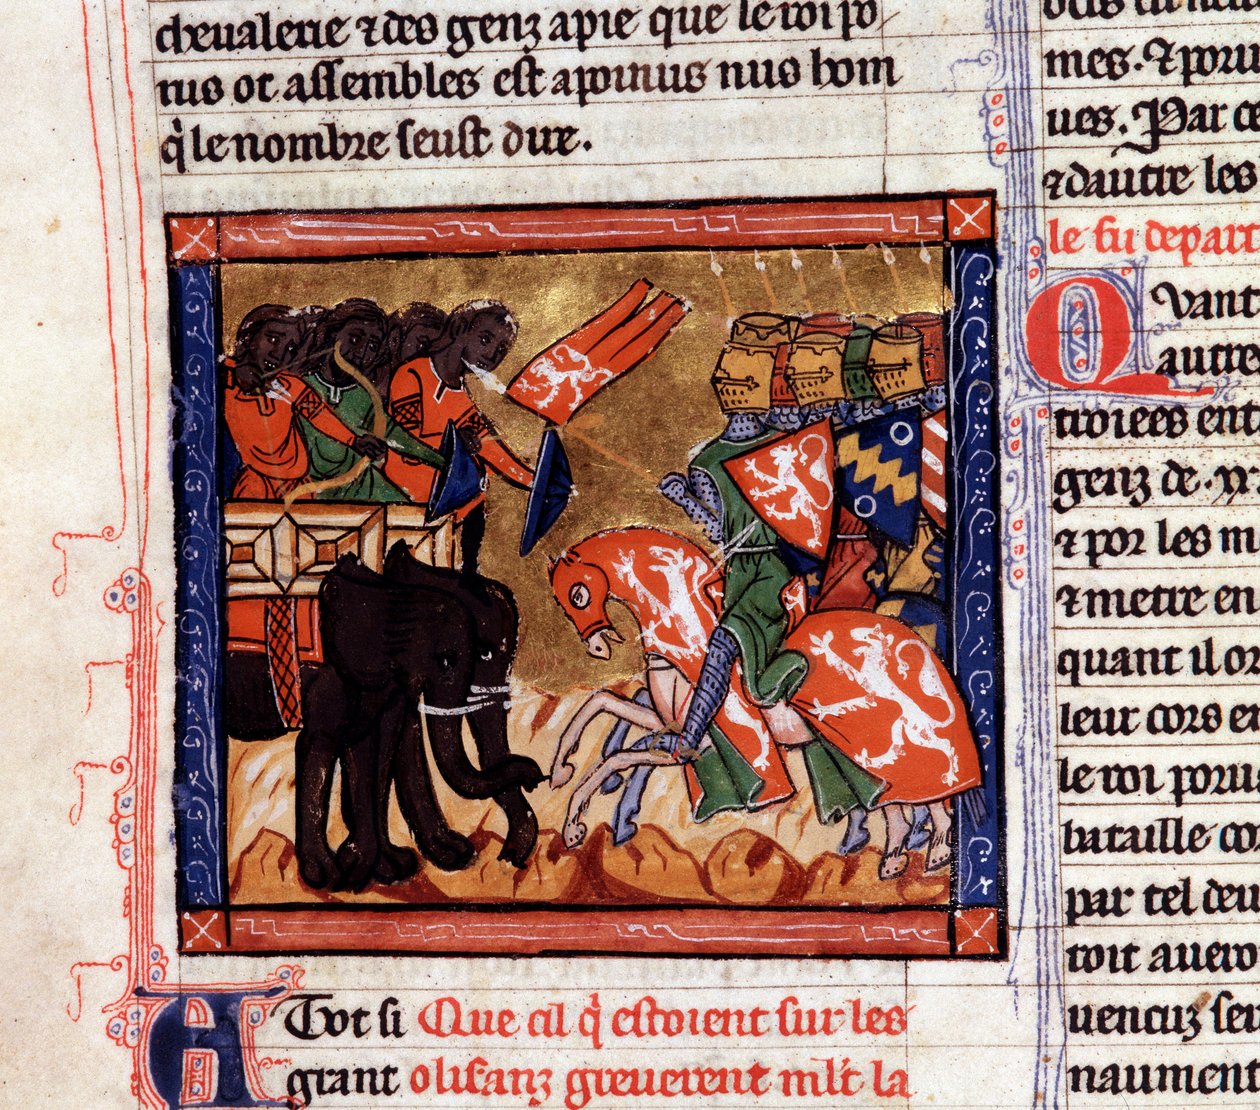 cheualerie ⁊ des genz a pie que le roi po
rus ot assembles est a poinnus nus hom
q̓ le nombre seust dire.
A Tot si Que cil q̓ estoient sur les
grant olifanz greuerent ml̓t la
mes. ⁊ poru
ues. Par ce
⁊ dautre les
le fu depart
Quant
autre
troiees ent
genz de
⁊ por les m
⁊ metre en
quant il or
leur cors en
le roi poru
bataille co
par tel deu
roit auero
uencuz ser
naument